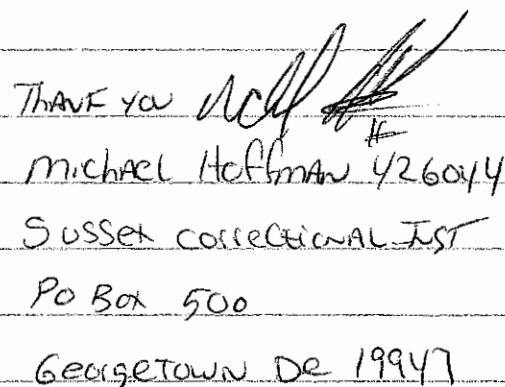 Thank you
#
Michael Hoffman 426044
Sussex correctional Inst
Po Box 500
Georgetown De 19947